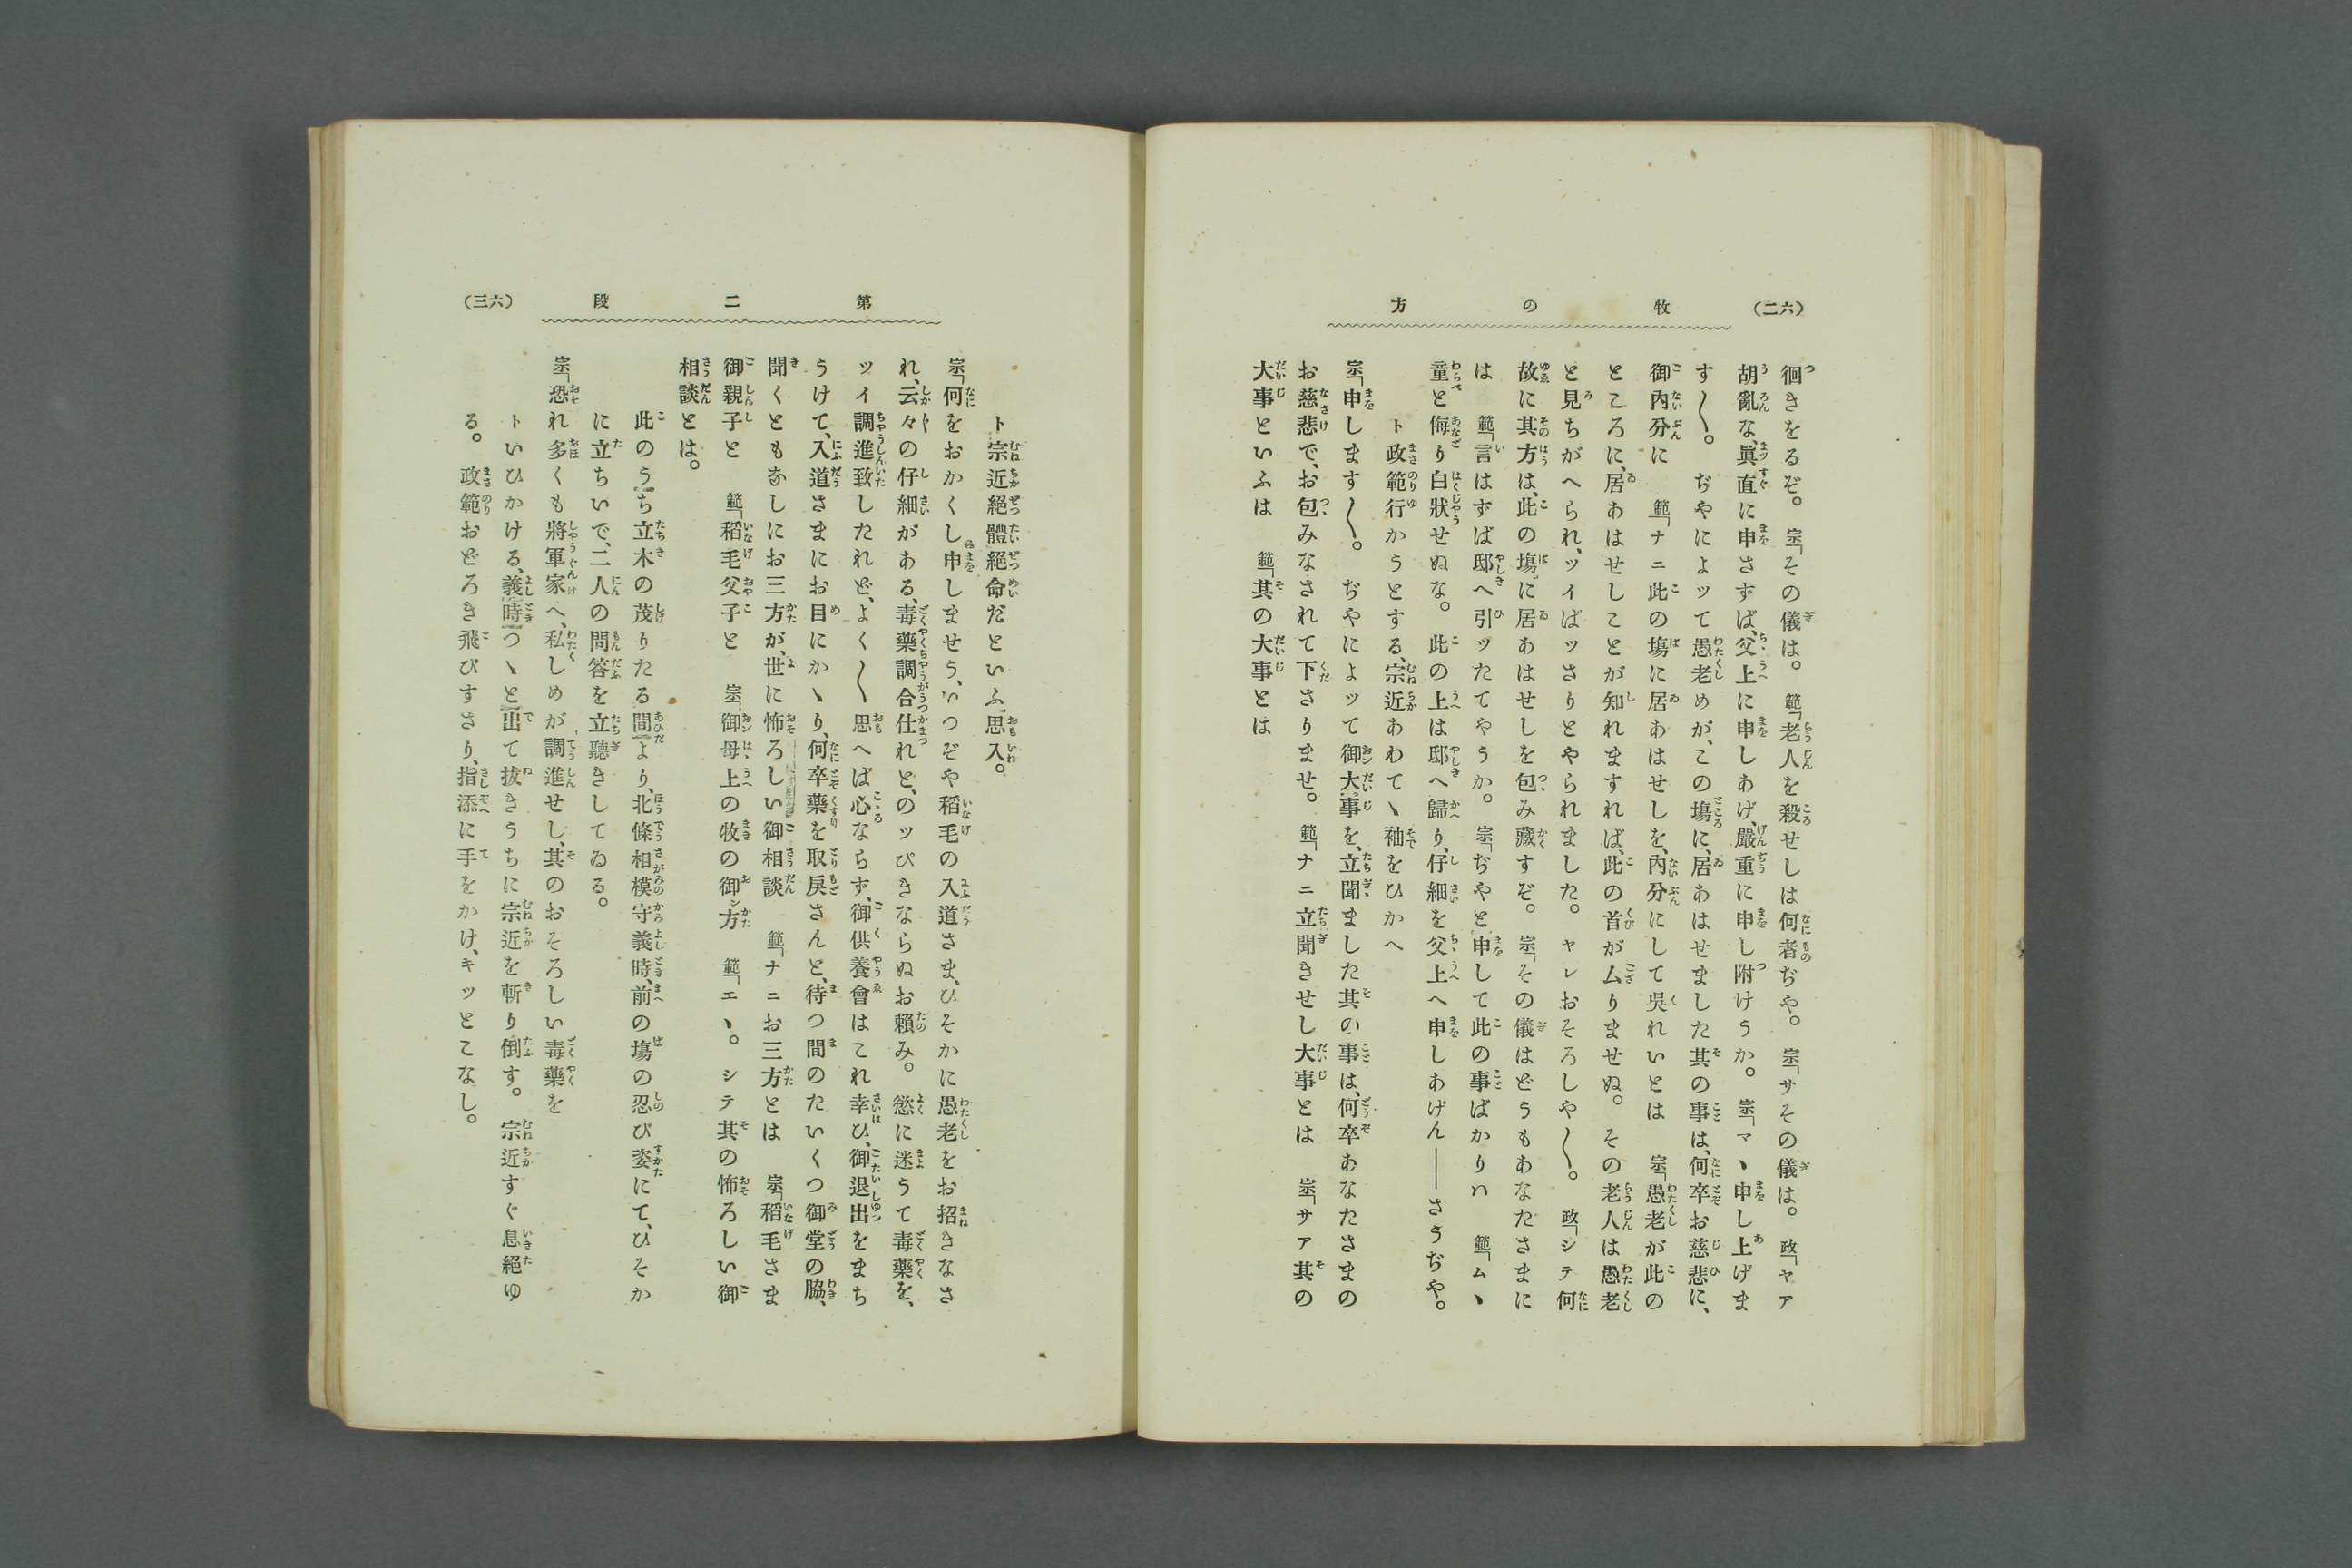 （六二）
牧の方
徊きをるぞ。　宗「その儀は。　範「老人を殺せしは何者ぢや。　宗「サその儀は。　政「ヤア
胡亂な、眞直に申さずば、父上に申しあげ、嚴重に申し附けうか。　宗「マヽ申し上げま
す〱。　ぢやによッて愚老めが、この塲に、居あはせました其の事は、何卒お慈悲に、
御內分に　範「ナニ此の塲に居あはせしを、內分にして吳れいとは　宗「愚老が此の
ところに、居あはせしことが知れますれば、此の首がムりませぬ。　その老人は愚老
と見ちがへられ、ツイばッさりとやられました。　ヤレおそろしや〱。　政「シテ何
故に其方は、此の塲に居あはせしを包み藏すぞ。　宗「その儀はどうもあなたさまに
は　範「言はずば邸へ引ッたてやうか。　宗「ぢやと申して此の事ばかりハ　範「ムヽ
童と侮り白狀せぬな。　此の上は邸へ歸り、仔細を父上へ申しあげん――さうぢや。
ト政範行かうとする、宗近あわてヽ袖をひかへ
宗「申します〱。　ぢやによッて御大事を、立聞ました其の事は、何卒あなたさまの
お慈悲で、お包みなされて下さりませ。　範「ナニ立聞きせし大事とは　宗「サア其の
大事といふは　範「其の大事とは
（六三）
第二段
ト宗近絕體絕命だといふ思入。
宗「何をおかくし申しませう、いつぞや稻毛の入道さま、ひそかに愚老をお招きなさ
れ、云々の仔細がある、毒藥調合仕れと、のッぴきならぬお賴み。　慾に迷うて毒藥を、
ツイ調進致したれど、よく〱思へば心ならず、御供養會はこれ幸ひ、御退出をまち
うけて、入道さまにお目にかヽり、何卒藥を取戾さんと、待つ間のたいくつ御堂の脇、
聞くともなしにお三方が、世に怖ろしい御相談　範「ナニお三方とは　宗「稻毛さま
御親子と　範「稻毛父子と　宗「御母上の牧の御ン方　範「エヽ。　シテ其の怖ろしい御
相談とは。
此のうち立木の茂りたる間より、北條相模守義時、前の塲の忍び姿にて、ひそか
に立ちいで、二人の問答を立聽きしてゐる。
宗「恐れ多くも將軍家へ、私しめが調進せし、其のおそろしい毒藥を
トいひかける、義時つヽと出て拔きうちに宗近を斬り倒す。　宗近すぐ息絕ゆ
る。　政範おどろき飛びすさり、指添に手をかけ、キッとこなし。